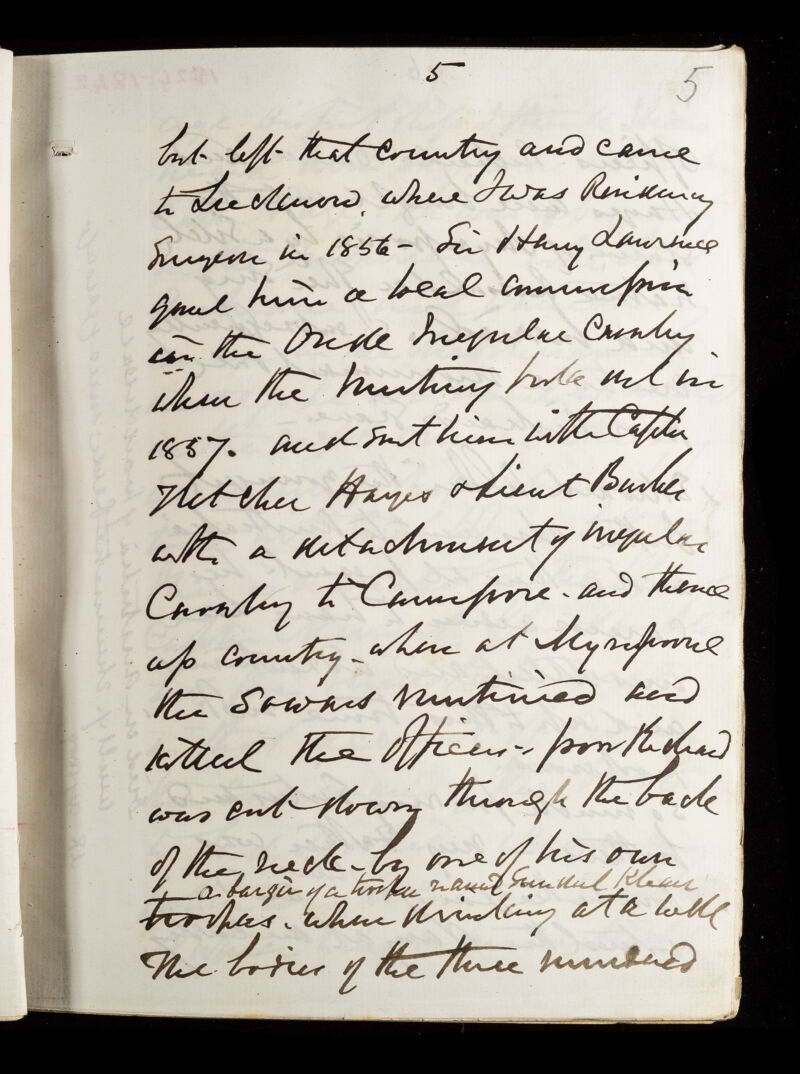 5
5
but left that country and came
to Lucknow, where I was Residency
Surgeon in 1856 - Sir Henry Lawrence
gave him a local commission
in the Oude Irregular Cavalry
when the Mutiny broke out in
1857. and sent him with Captn
Fletcher Hayes & Lieut Barber
with a detachment of irregular
Cavalry to Cawnpore - and thence
up country - when at Mynpoorie
the Sowars mutinied and
killed the Officers - poor Richard
was cut down through the back
of the neck - by one of his own
a bargir of a trooper named Khan
troopers - when drinking at a well
The bodies of the three murdered